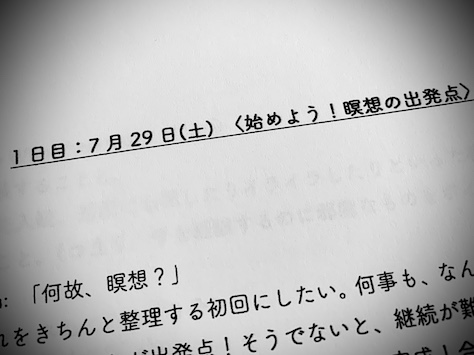 1日目：7月29日(土) 〈始めよう！瞑想の出発点〉
「何故、瞑想？」
れをきちんと整理する初回にしたい。何事も、なん
が出発点！そうでないと、継続が難